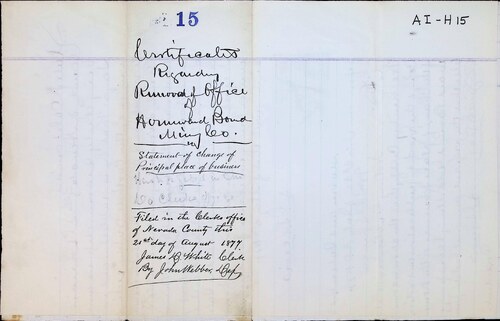 15
AI-H15
Certificates
Regarding
Removal of Office
of
Homeward Bound
Ming Co.
Statement of change of
Principal place of business
Filed in the Clerks office
of Nevada County this
21st day of August 1877.
James D. White Clerk
By John Webber, Depy